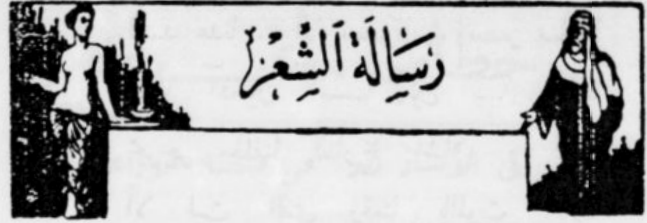 رِسَالَة الشِّعْرِ